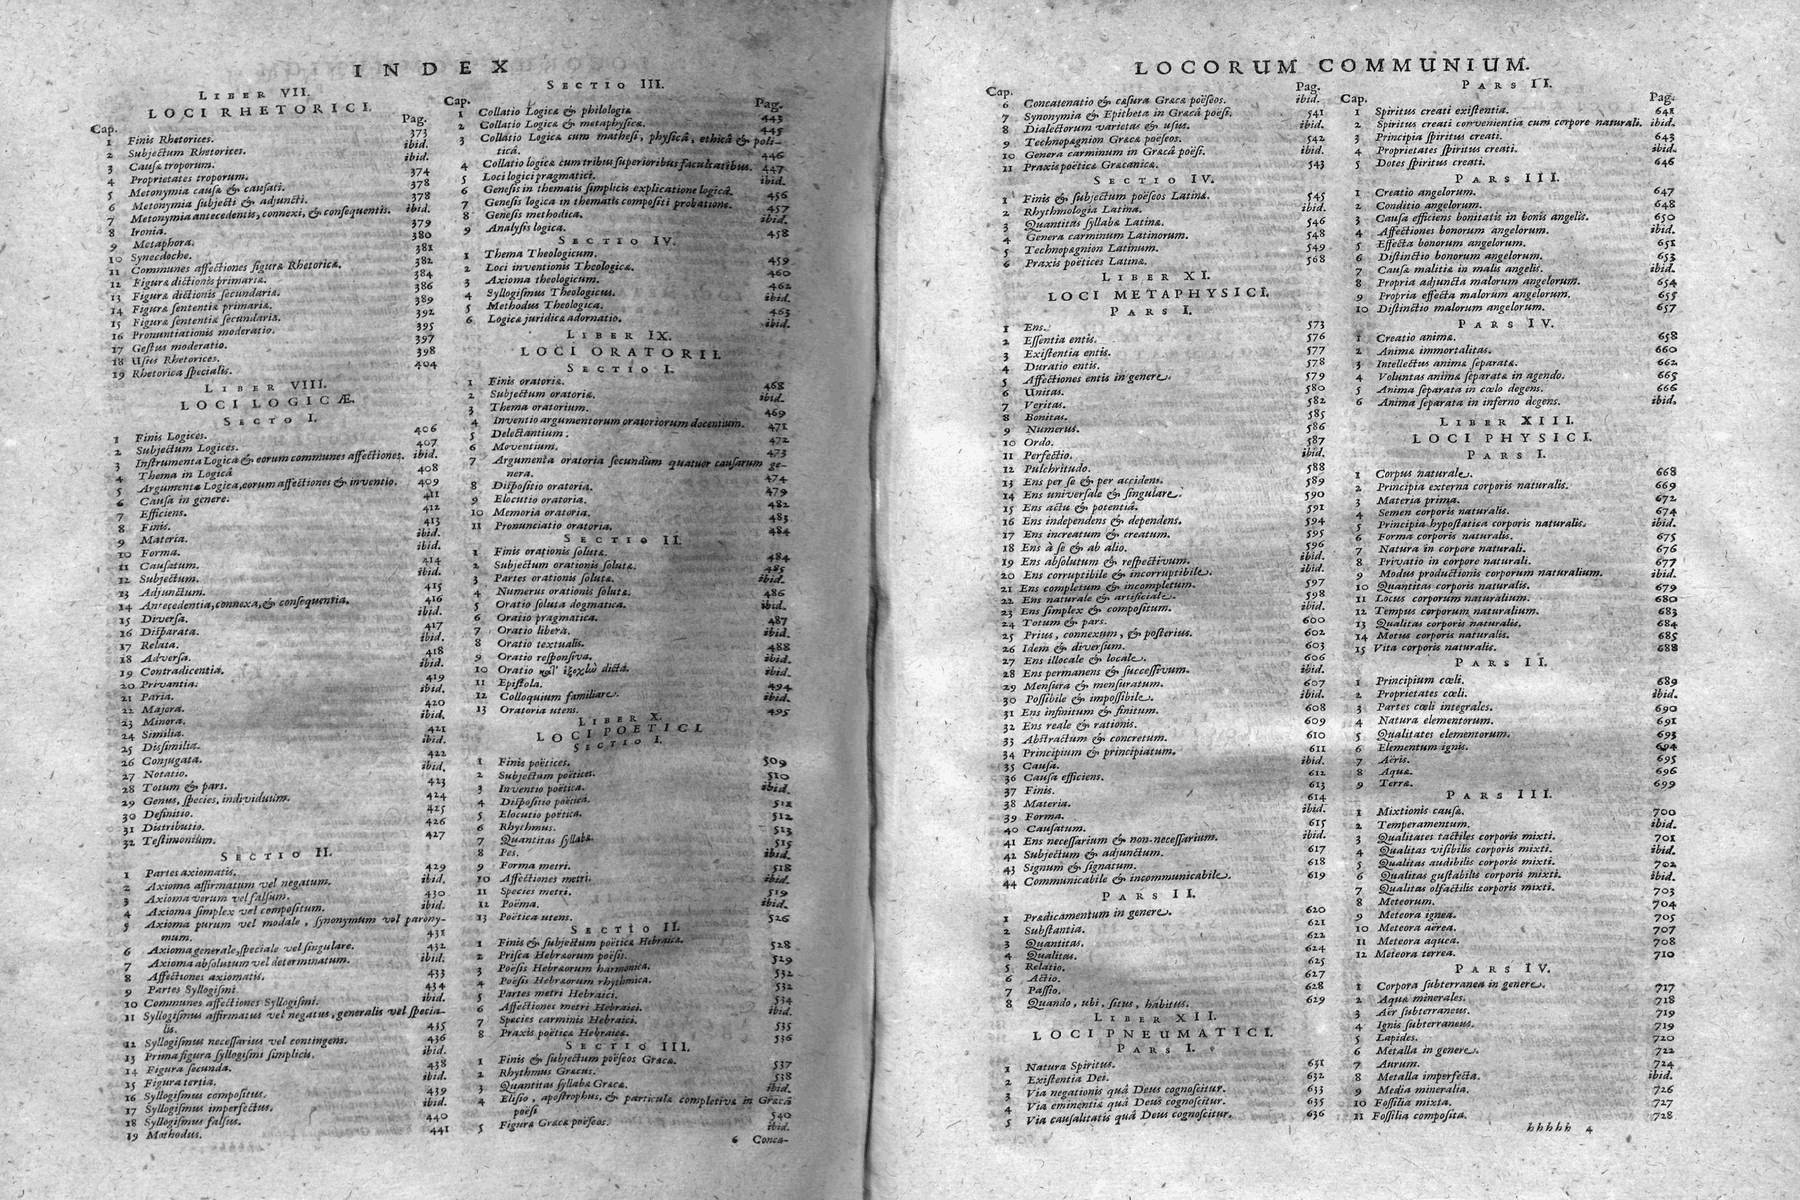 INDEX
LIBER VII.
LOCI RHETORICI.
Cap. Pag.
1 Finis Rhetorices. 373
2 Subjectum Rhetorices. ibid.
3 Causæ troporum. ibid.
4 Proprietates troporum. 374
5 Metonymia causæ & causati. 378
6 Metonymia subjecti & adjuncti. 378
7 Metonymia antecedentis, connexi, & consequentis. ibid.
8 Ironia. 379
9 Metaphora. 380
10 Synecdoche. 381
11 Communes affectiones figuræ Rhetoricæ. 382
12 Figuræ dictionis primariæ. 384
13 Figuræ dictionis secundariæ. 386
14 Figuræ sententiæ primariæ. 389
15 Figuræ sententiæ secundariæ. 392
16 Pronuntiationis moderatio. 395
17 Gestus moderatio. 397
18 Usus Rhetorices. 398
19 Rhetorica specialis. 404
LIBER VIII.
LOCI LOGICÆ.
SECTO I.
1 Finis Logices. 406
2 Subjectum Logices. 407
3 Instrumenta Logica & eorum communes affectiones. ibid.
4 Thema in Logicâ 408
5 Argumenta Logica, eorum affectiones & inventio. 409
6 Causa in genere. 411
7 Efficiens. 412
8 Finis. 413
9 Materia. ibid.
10 Forma. ibid.
11 Causatum. 414
12 Subjectum. ibid.
13 Adjunctum. 415
14 Antecedentia, connexa, & consequentia. 416
15 Diversa. ibid.
16 Disparata. 417
17 Relata. ibid.
18 Adversa. 418
19 Contradicentia. ibid.
20 Privantia. 419
21 Paria. ibid.
22 Majora. 420
23 Minora. ibid.
24 Similia. 421
25 Dissimilia. ibid.
26 Conjugata. 422
27 Notatio. ibid.
28 Totum & pars. 423
29 Genus, species, individuum. 424
30 Definitio. 425
31 Distributio. 426
32 Testimonium. 427
SECTIO II.
1 Partes axiomatis. 429
2 Axioma affirmatum vel negatum. ibid.
3 Axioma verum vel falsum. 430
4 Axioma simplex vel compositum. ibid.
5 Axioma purum vel modale, synonymum vel parony-
mum. 431
6 Axioma generale, speciale vel singulare. 432
7 Axioma absolutum vel determinatum. ibid.
8 Affectiones axiomatis. 433
9 Partes Syllogismi 434
10 Communes affectiones Syllogismi. ibid.
11 Syllogismus affirmatus vel negatus, generalis vel specia-
lis. 435
12 Syllogismus necessarius vel contingens. 436
13 Prima figura syllogismi simplicis. ibid.
14 Figura secunda. 438
15 Figura tertia. ibid.
16 Syllogismus compositus. 439
17 Syllogismus imperfectus. ibid.
18 Syllogismus falsus. 440
19 Methodus. 441
SECTIO III.
Cap. Pag.
1 Collatio Logicæ & philologiæ 443
2 Collatio Logicæ & metaphysicæ. 445
3 Collatio Logicæ cum mathesi, physicâ, ethicâ & poli-
ticâ. 446
4 Collatio logicæ cum tribus superioribus facultatibus. 447
5 Loci logici pragmatici. ibid.
6 Genesis in thematis simplicis explicatione logicâ. 456
7 Genesis logica in thematis compositi probatione. 457
8 Genesis methodica. ibid.
9 Analysis logica. 458
SECTIO IV.
1 Thema Theologicum. 459
2 Loci inventionis Theologicæ. 460
3 Axioma theologicum. 462
4 Syllogismus Theologicus. ibid.
5 Methodus Theologica. 463
6 Logicæ juridicæ adornatio. ibid.
LIBER IX.
LOCI ORATORII.
SECTIO I.
1 Finis oratoriæ. 468
2 Subjectum oratoriæ. ibid.
3 Thema oratorium. 469
4 Inventio argumentorum oratoriorum docentium. 471
5 Delectantium. 472
6 Moventium. 473
7 Argumenta oratoria secundùm quatuor causarum ge-
nera. 474
8 Dispositio oratoria. 479
9 Elocutio oratoria. 482
10 Memoria oratoria. 483
11 Pronunciatio oratoria. 484
SECTIO II.
1 Finis orationis solutæ. 484
2 Subjectum orationis solutæ. 485
3 Partes orationis solutæ. ibid.
4 Numerus orationis solutæ. 486
5 Oratio soluta dogmatica. ibid.
6 Oratio pragmatica. 487
7 Oratio libera. ibid.
8 Oratio textualis. 488
9 Oratio responsiva. ibid.
10 Oratio κατ' ἐξοχὼ dicta. ibid.
11 Epistola. 494
12 Colloquium familiare. ibid.
13 Oratoria utens. 495
LIBER X.
LOCI POETICI.
SECTIO I.
1 Finis poëtices. 509
2 Subjectum poëtices. 510
3 Inventio poëtica. ibid.
4 Dispositio poëtica. 512
5 Elocutio poëtica. 512
6 Rhythmus. 513
7 Quantitas syllabæ. 515
8 Pes. ibid.
9 Forma metri. 518
10 Affectiones metri. ibid.
11 Species metri. 519
12 Poëma. ibid.
13 Poëtica utens. 526
SECTIO II.
1 Finis & subjectum poëticæ Hebraicæ. 528
2 Prisca Hebræorum poësis. 529
3 Poësis Hebræorum harmonica. 532
4 Poësis Hebræorum rhythmica. 532
5 Partes metri Hebraici. 534
6 Affectiones metri Hebraici. ibid.
7 Species carminis Hebraici. 535
8 Praxis poëticæ Hebraicæ. 536
SECTIO III.
1 Finis & subjectum poëseos Græcæ. 537
2 Rhythmus Græcus. 538
3 Quantitas syllabæ Græcæ. ibid.
4 Elisio, apostrophus, & particulæ completivæ in Græcâ
poësi 540
5 Figuræ Græcæ poëseos. ibid.
6 Conca-
LOCORUM COMMUNIUM.
Cap. Pag.
6 Concatenatio & cæsura Græcæ poëseos. ibid.
7 Synonymia & Epitheta in Græcâ poësi. 541
8 Dialectorum varietas & usus. ibid.
9 Technopægnion Græcæ poëseos. 542
10 Genera carminum in Græcâ poësi. ibid.
11 Praxis poëtica Græcanica. 543
SECTIO IV.
1 Finis & subjectum poëseos Latinæ. 545
2 Rhythmologia Latina. ibid.
3 Quantitas syllabæ Latinæ. 546
4 Genera carminum Latinorum. 548
5 Technopægnion Latinum. 549
6 Praxis poëtices Latinæ. 568
LIBER XI.
LOCI METAPHYSICI.
PARS I.
1 Ens. 573
2 Essentia entis. 576
3 Existentia entis. 577
4 Duratio entis. 578
5 Affectiones entis in genere. 579
6 Unitas. 580
7 Veritas. 582
8 Bonitas. 585
9 Numerus. 586
10 Ordo. 587
11 Perfectio. ibid.
12 Pulchritudo. 588
13 Ens per se & per accidens. 589
14 Ens universale & singulare. 590
15 Ens actu & potentiâ. 591
16 Ens independens & dependens. 594
17 Ens increatum & creatum. 595
18 Ens à se & ab alio. 596
19 Ens absolutum & respectivum. ibid.
20 Ens corruptibile & incorruptibile. ibid.
21 Ens completum & incompletum. 597
22 Ens naturale & artificiale. 598
23 Ens simplex & compositum. ibid.
24 Totum & pars. 600
25 Prius, connexum, & posterius. 602
26 Idem & diversum. 603
27 Ens illocale & locale. 606
28 Ens permanens & successivum. ibid.
29 Mensura & mensuratum. 607
30 Possibile & impossibile. ibid.
31 Ens infinitum & finitum. 608
32 Ens reale & rationis. 609
33 Abstractum & concretum. 610
34 Principium & principiatum. 611
35 Causa. ibid.
36 Causa efficiens. 612
37 Finis. 613
38 Materia. 614
39 Forma. ibid.
40 Causatum. 615
41 Ens necessarium & non-necessarium. ibid.
42 Subjectum & adjunctum. 617
43 Signum & signatum. 618
44 Communicabile & incommunicabile. 619
PARS II.
1 Prædicamentum in genere. 620
2 Substantia. 621
3 Quantitas. 622
4 Qualitas. 624
5 Relatio. 625
6 Actio. 627
7 Passio. 628
8 Quando, ubi, situs, habitus. 629
LIBER XII.
LOCI PNEUMATICI.
PARS I.
1 Natura Spiritus. 631
2 Existentia Dei. 632
3 Via negationis quâ Deus cognoscitur. 633
4 Via eminentiæ quâ Deus cognoscitur. 635
5 Via causalitatis quâ Deus cognoscitur. 636
PARS II.
Cap. Pag.
1 Spiritus creati existentia. 641
2 Spiritus creati convenientia cum corpore naturali. ibid.
3 Principia spiritus creati. 643
4 Proprietates spiritus creati. ibid.
5 Dotes spiritus creati. 646
PARS III.
1 Creatio angelorum. 647
2 Conditio angelorum. 648
3 Causa efficiens bonitatis in bonis angelis. 650
4 Affectiones bonorum angelorum. ibid.
5 Effecta bonorum angelorum. 651
6 Distinctio bonorum angelorum. 653
7 Causa malitiæ in malis angelis. ibid.
8 Propria adjuncta malorum angelorum. 654
9 Propria effecta malorum angelorum. 655
10 Distinctio malorum angelorum. 657
PARS IV.
1 Creatio animæ. 658
2 Animæ immortalitas. 660
3 Intellectus animæ separatæ. 662
4 Voluntas animæ separatæ in agendo. 665
5 Anima separata in cœlo degens. 666
6 Anima separata in inferno degens. ibid.
LIBER XIII.
LOCI PHYSICI.
PARS I.
1 Corpus naturale. 668
2 Principia externa corporis naturalis. 669
3 Materia prima. 672
4 Semen corporis naturalis. 674
5 Principia hypostatica corporis naturalis. ibid.
6 Forma corporis naturalis. 675
7 Natura in corpore naturali. 676
8 Privatio in corpore naturali. 677
9 Modus productionis corporum naturalium. ibid.
10 Quantitas corporis naturalis. 679
11 Locus corporum naturalium. 680
12 Tempus corporum naturalium. 683
13 Qualitas corporis naturalis. 684
14 Motus corporis naturalis. 685
15 Vita corporis naturalis. 688
PARS II.
1 Principium cœli. 689
2 Proprietates cœli. ibid.
3 Partes cœli integrales. 690
4 Natura elementorum. 691
5 Qualitates elementorum. 693
6 Elementum ignis. 694
7 Aëris. 695
8 Aquæ. 696
9 Terræ. 699
PARS III.
1 Mixtionis causæ. 700
2 Temperamentum. ibid.
3 Qualitates tactiles corporis mixti. 701
4 Qualitas visibilis corporis mixti. ibid.
5 Qualitas audibilis corporis mixti. 702
6 Qualitas gustabilis corporis mixti ibid.
7 Qualitas olfactilis corporis mixti. 703
8 Meteorum. 704
9 Meteora ignea. 705
10 Meteora aërea. 707
11 Meteora aquea. 708
12 Meteora terrea. 710
PARS IV.
1 Corpora subterranea in genere. 717
2 Aquæ minerales. 718
3 Aër subterraneus. 719
4 Ignis subterraneus. 719
5 Lapides. 720
6 Metalla in genere. 722
7 Aurum. 724
8 Metalla imperfecta. ibid.
9 Media mineralia. 726
10 Fossilia mixta. 727
11 Fossilia composita. 728
hhhhh 4